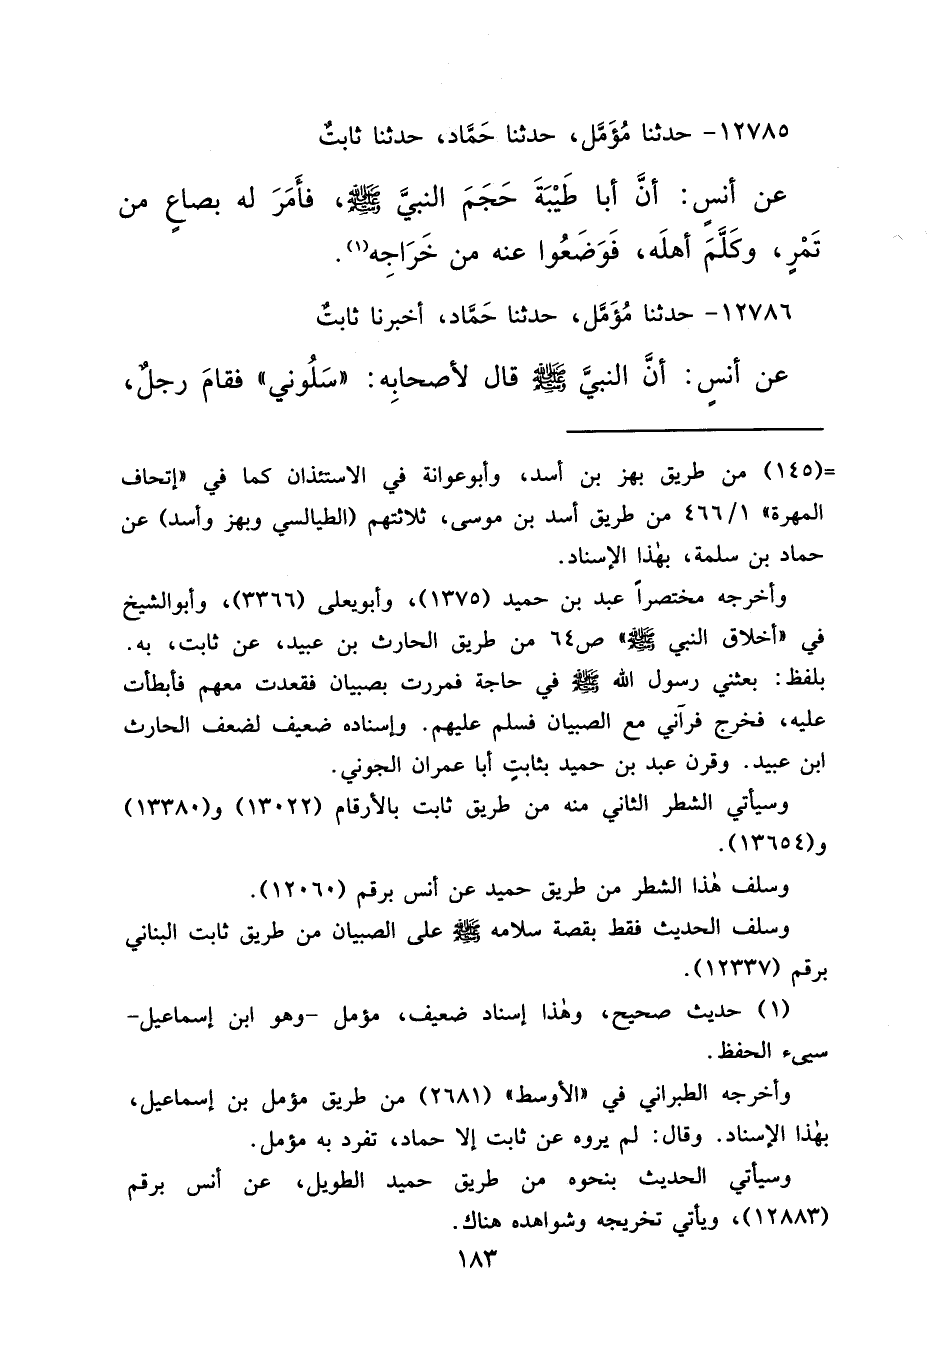 ١٢٧٨٥- حدثنا مُؤَمَّل، حدثنا حَمَّاد، حدثنا ثابتٌ
عن أنسٍ: أنَّ أبا طَيْبَةَ حَجَمَ النبيَّ ﷺ، فأَمَرَ له بصاعٍ من
تَمْرٍ، وكَلَّمَ أهلَه، فَوَضَعُوا عنه من خَرَاجِه(١).
١٢٧٨٦- حدثنا مُؤَمَّل، حدثنا حَمَّاد، أخبرنا ثابتٌ
عن أنسٍ: أنَّ النبيَّ ﷺ قال لأصحابِه: «سَلُوني» فقامَ رجلٌ،
=(١٤٥) من طريق بهز بن أسد، وأبوعوانة في الاستئذان كما في «إتحاف
المهرة» ٤٦٦/١ من طريق أسد بن موسى، ثلاثتهم (الطيالسي وبهز وأسد) عن
حماد بن سلمة، بهٰذا الإسناد.
وأخرجه مختصراً عبد بن حميد (١٣٧٥)، وأبويعلى (٣٣٦٦)، وأبوالشيخ
في «أخلاق النبي ﷺ» ص٦٤ من طريق الحارث بن عبيد، عن ثابت، به.
بلفظ: بعثني رسول الله ﷺ في حاجة فمررت بصبيان فقعدت معهم فأبطأت
عليه، فخرج فرآني مع الصبيان فسلم عليهم. وإسناده ضعيف لضعف الحارث
ابن عبيد. وقرن عبد بن حميد بثابتٍ أبا عمران الجوني.
وسيأتي الشطر الثاني منه من طريق ثابت بالأرقام (١٣٠٢٢) و(١٣٣٨٠)
و(١٣٦٥٤).
وسلف هٰذا الشطر من طريق حميد عن أنس برقم (١٢٠٦٠).
وسلف الحديث فقط بقصة سلامه ﷺ على الصبيان من طريق ثابت البناني
برقم (١٢٣٣٧).
(١) حديث صحيح، وهٰذا إسناد ضعيف، مؤمل -وهو ابن إسماعيل-
سيىء الحفظ.
وأخرجه الطبراني في «الأوسط» (٢٦٨١) من طريق مؤمل بن إسماعيل،
بهٰذا الإسناد. وقال: لم يروه عن ثابت إلا حماد، تفرد به مؤمل.
وسيأتي الحديث بنحوه من طريق حميد الطويل، عن أنس برقم
(١٢٨٨٣)، ويأتي تخريجه وشواهده هناك.
١٨٣